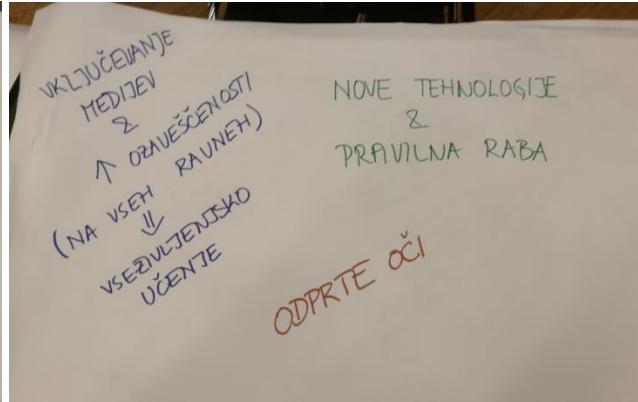 VKLJUČEVANJE
MEDIJEV
&
↑ OZAVEŠČENOSTI
(NA VSEH RAVNEH)
⇓
VSEŽIVLJENJSKO
UČENJE
NOVE TEHNOLOGIJE
&
PRAVILNA RABA
ODPRTE OČI